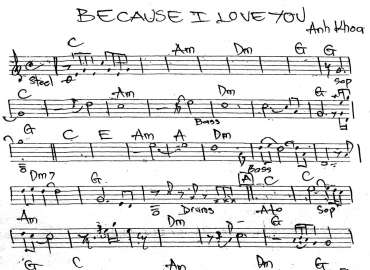 BECAUSE I LOVE YOU
Anh Khoa
C Am Dm G G
Steel Sop
C Am Dm G
Bass
G C E Am A Dm
Bass
Dm7 G A C C
Drums Alto Sop
Am Dm G
G C Am Dm G